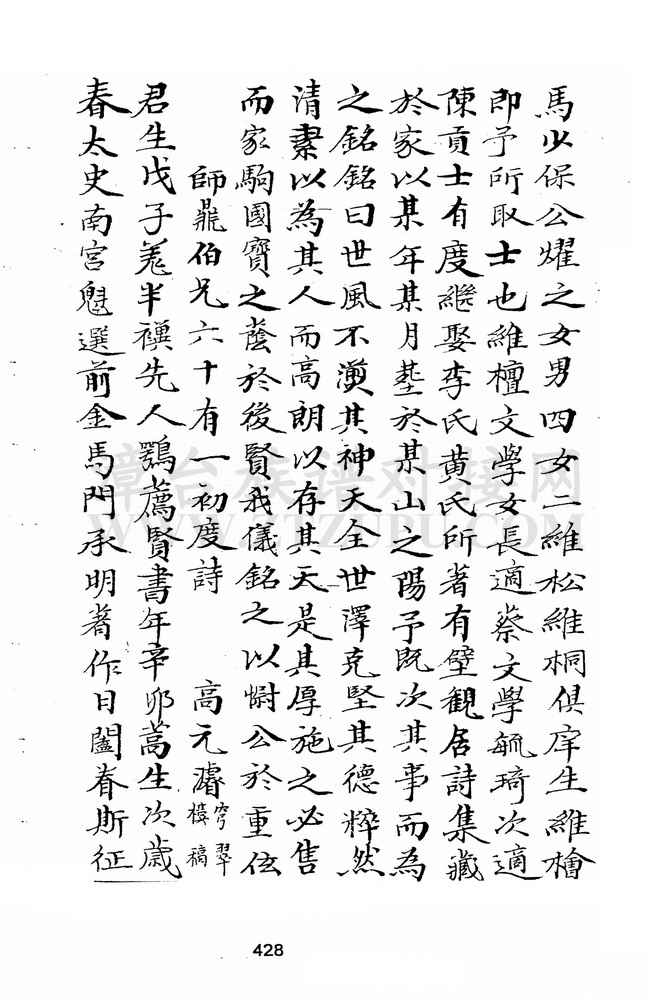 馬少保公燿之女男四女二維松維桐俱庠生維檜
即予所取士也維檀文學女長適蔡文學毓琦次適
陳貢士有度繼娶李氏黄氏所著有壁觀居詩集藏
於家以某年某月塟於某山之陽予既次其事而為
之銘銘曰世風不澆其神天全世澤克堅其德粹然
清素以為其人而高朗以存其天是其厚施之必售
而家駒國寶之蔭於後賢我儀銘之以慰公於重伭
師巢伯兄六十有一初度詩 高元濬
君生戊子羗半襆先人鶚薦賢書年辛卯嵩生次歲
春太史南宮魁選前金馬門承明著作日闔眷斯征
漳台族谱对接网
WWW.ZTZUPU.COM
428